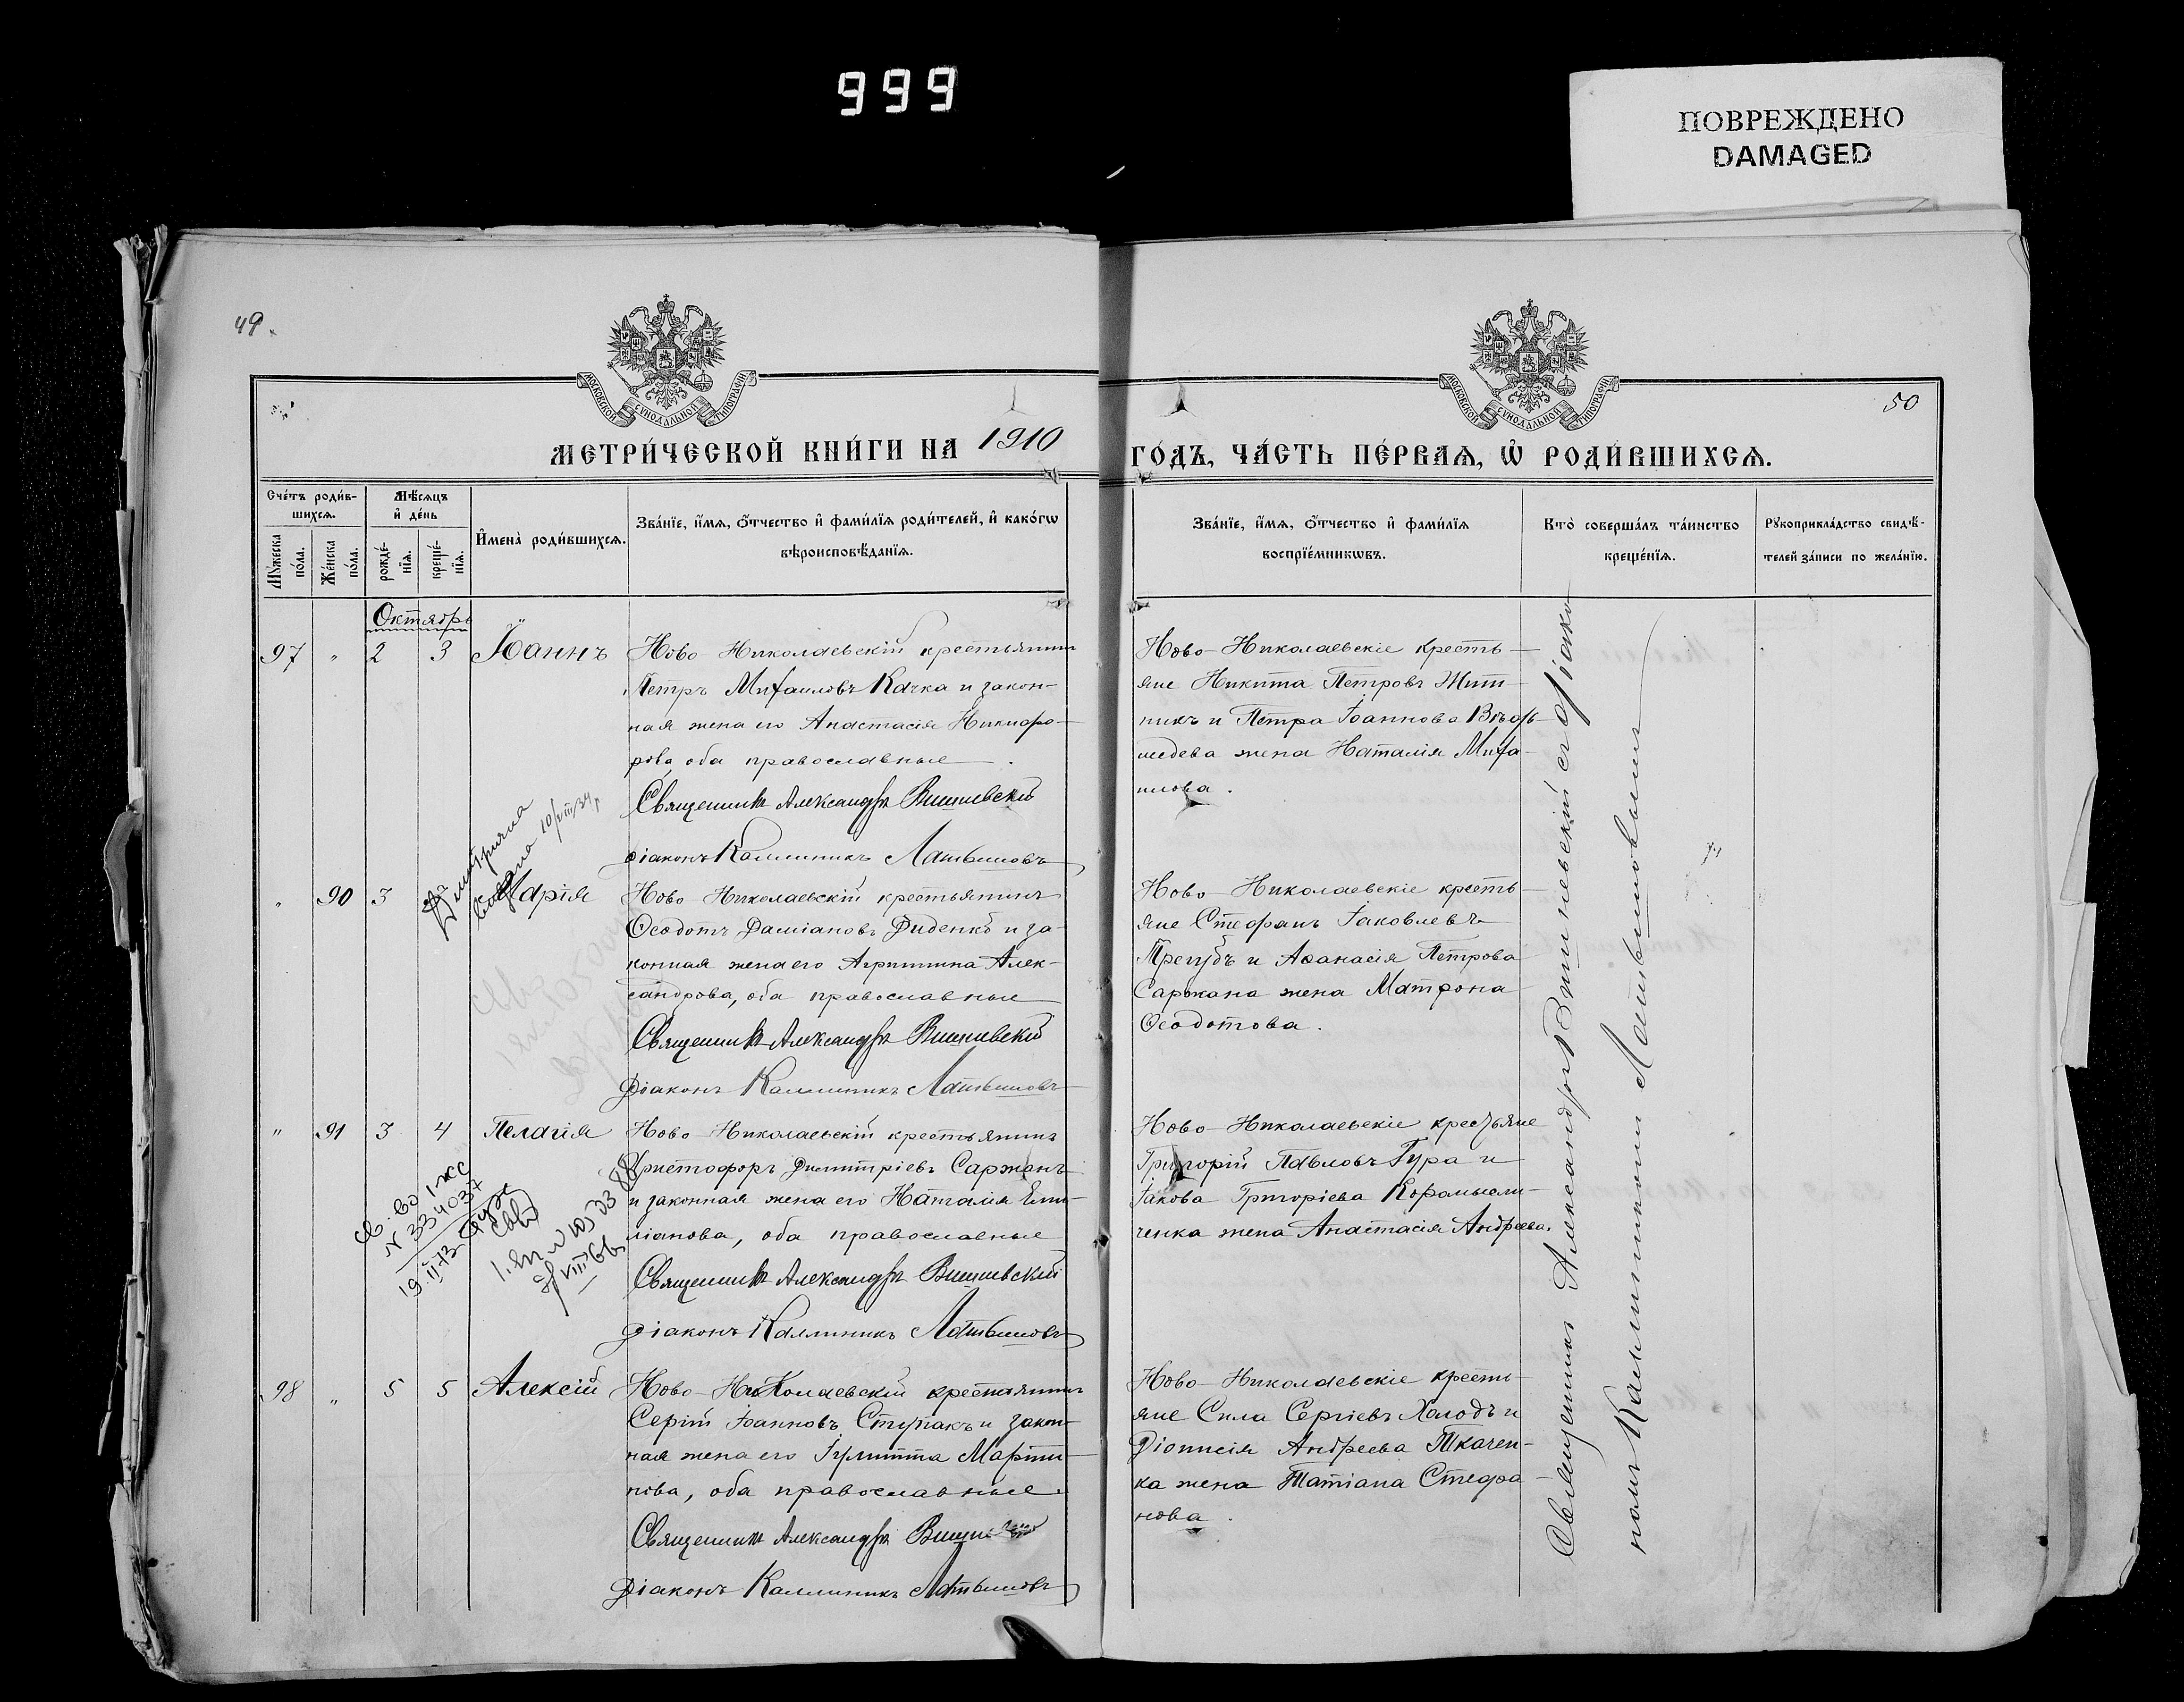 999
ПОВРЕЖДЕНО
DAMAGED
49.
МОСКОВСКОЙ СѴНОДАЛЬНОЙ ТИПОГРАФІИ
МОСКОВСКОЙ СѴНОДАЛЬНОЙ ТИПОГРАФІИ
50
МЕТРИ́ЧЕСКОЙ КНИ́ГИ НА 1910 ГО́ДЪ, ЧА́СТЬ ПЕ́РВАѦ, Ѡ҆ РОДИ́ВШИХСѦ.
Сче́тъ роди́в-
шихсѧ.
Мꙋ́жеска по́ла.
Же́нска по́ла.
Мѣ́сѧцъ
и҆ де́нь
рожде́-
нїѧ.
креще́-
нїѧ.
И҆мена̀ роди́вшихсѧ.
Зва́нїе, и҆́мѧ, ѻ҆́тчество и҆ фами́лїѧ роди́телей, и҆ како́гѡ
вѣроисповѣ́данїѧ.
Зва́нїе, и҆́мѧ, ѻ҆́тчество и҆ фами́лїѧ
воспрїе́мникѡвъ.
Кто̀ соверша́лъ та́инство
креще́нїѧ.
Рꙋкоприкла́дство свидѣ́-
телей за́писи по жела́нїю.
Октябрь
97 " 2 3 Іоаннъ
Ново-Николаевскій крестьянинъ
Петръ Михаиловъ Качка и закон-
ная жена его Анастасія Никифо-
рова, оба православные.
Священникъ Александръ Вишневскій
Діаконъ Каллиникъ Латышовъ
Ново-Николаевскіе кресть-
яне Никита Петровъ Жит-
никъ и Петра Іоаннова
жена Наталія Михаи-
лова.
" 90 3 Марія
10/VIII 34 р
Ново Николаевскій крестьянинъ
Ѳеодотъ Даміановъ Диденко и за-
конная жена его Агриппина Алек-
сандрова, оба православные
Священникъ Александръ Вишневскій
Діаконъ Каллиникъ Латышовъ
Ново-Николаевскіе кресть-
яне Стефанъ Іаковлевъ
Трегубъ и Аѳанасія Петрова
Саржана жена Матрона
Ѳеодотова.
" 91 3 4 Пелагія
Ново-Николаевскій крестьянинъ
Христофоръ Димитріевъ Саржанъ
и законная жена его Наталія Еми-
ліанова, оба православные
Священникъ Александръ Вишневскій
Діаконъ Каллиникъ Латышовъ
Ново-Николаевскіе крестьяне
Григорій Павловъ Гура и
Іакова Григоріева Коромысли-
ченка жена Анастасія Андреева.
св-во I-жс
N 334037
19.II-73
VIII 66
98 " 5 5 Алексій
Ново-Николаевскій крестьянинъ
Сергій Іоанновъ Ступакъ и закон-
ная жена его Іулитта Марти-
нова, оба православные.
Священникъ Александръ Вишневскій
Діаконъ Каллиникъ Латышовъ
Ново-Николаевскіе кресть-
яне Сила Сергіевъ Холодъ и
Діонисія Андреева Ткачен-
ка жена Татіана Стефа-
нова.
Священникъ Александръ Вишневскій съ діако-
номъ Каллиникомъ Латышовымъ